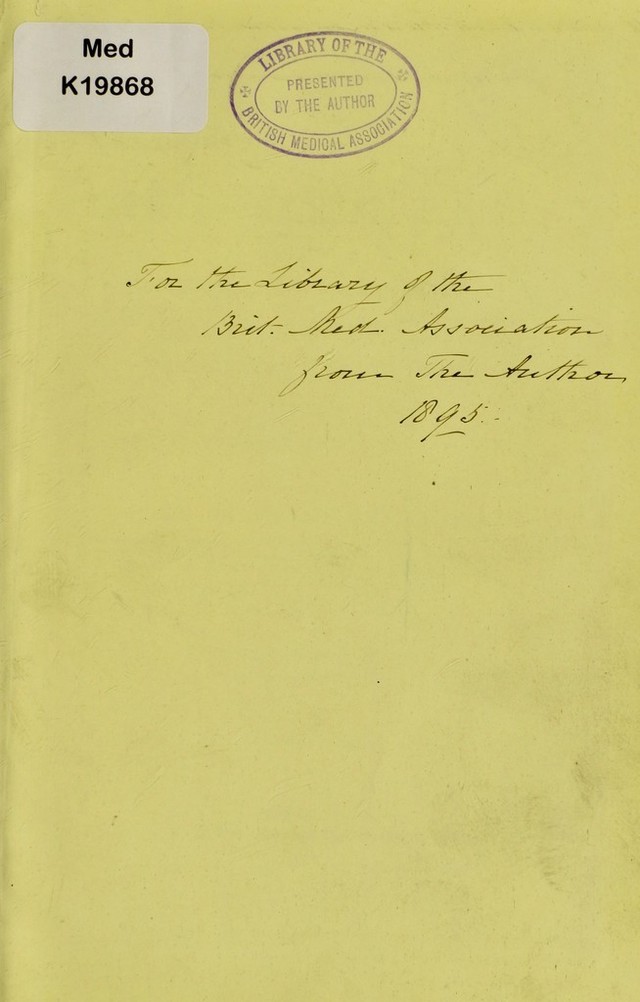 Med
K19868
LIBRARY OF THE
PRESENTED
BY THE AUTHOR
BRITISH MEDICAL ASSOCIATION
For the Library of the
Brit. Med. Association
from The Author
1895.